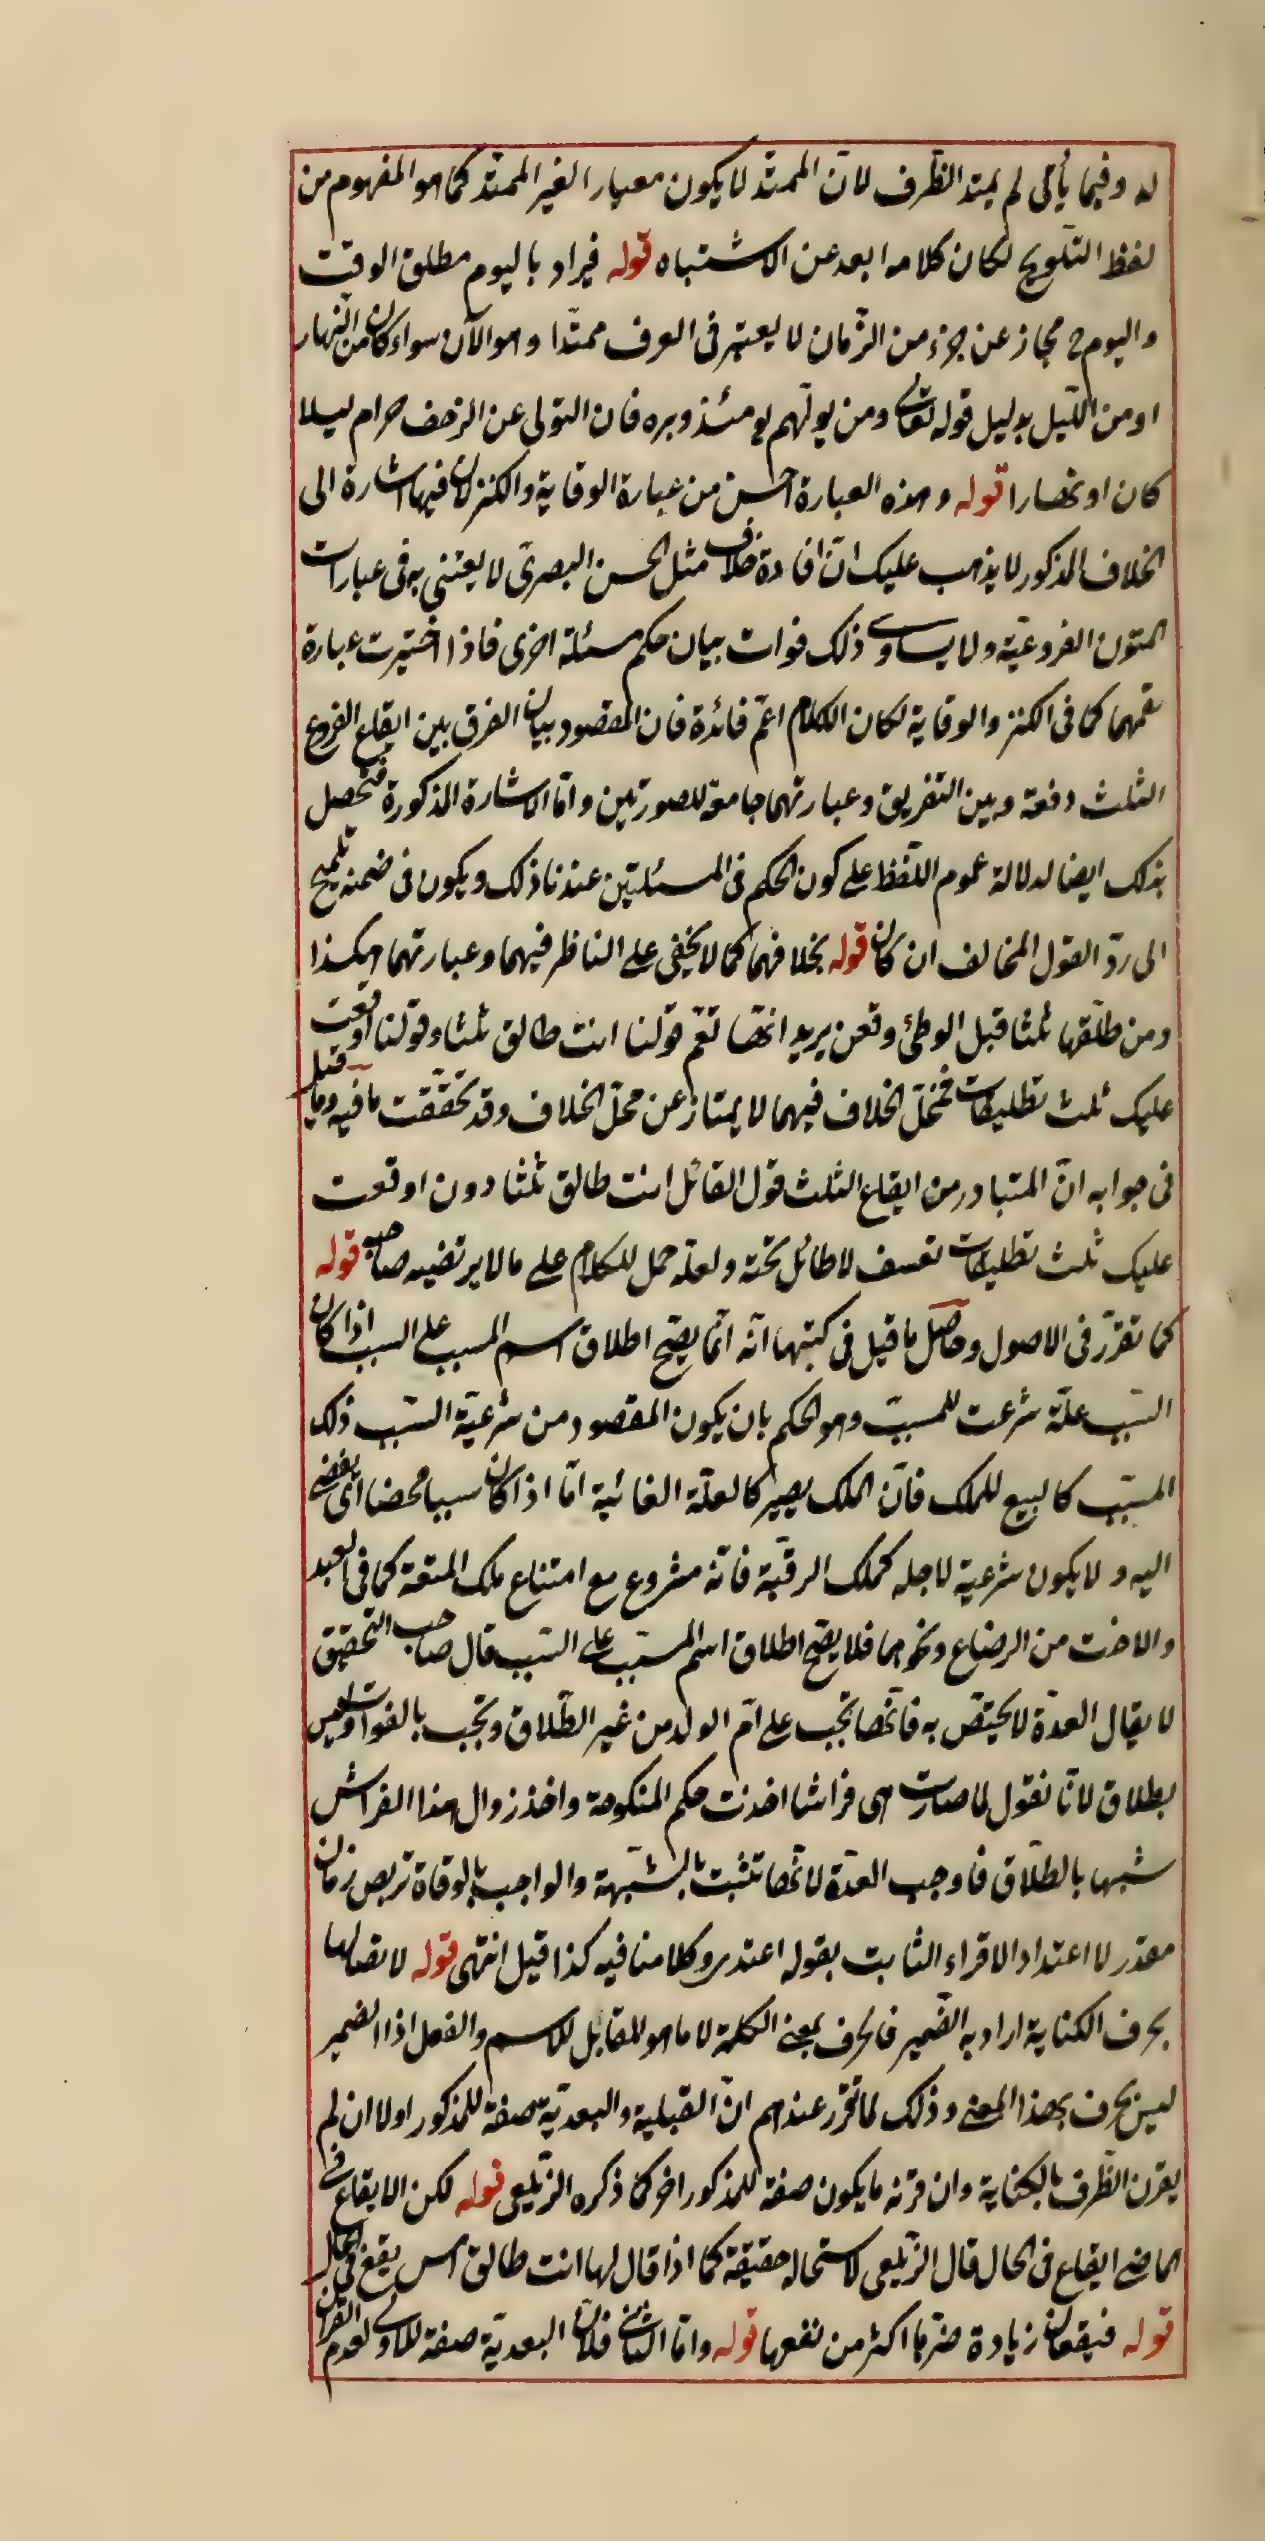 له وفيما يأتى لم يمتد الظّرف لانّ الممتدّ لا يكون معيار الغير الممتدّ كما هو المفهوم من
لفظ التلويح لكان كلامه ابعد عن الاشتباه قوله فيراد باليوم مطلق الوقت
واليوم ح مجاز عن جزء من الزّمان لا يعتبر فى العرف ممتدّا وهو الآن سواء كان من النّهار
او من اللّيل بدليل قوله تعالى ومن يولّهم يومئذ دبره فان التولى عن الزحف حرام ليلا
كان او نهارا قوله وهذه العبارة احسن من عبارة الوقاية والكنز لان فيها اشارة الى
الخلاف المذكور لا يذهب عليك انّ افادة خلاف مثل الحسن البصرىّ لا يعتنى به فى عبارات
المتون الفروعيّة ولا يساوى ذلك فوات بيان حكم مسئلة اخرى فاذا اختيرت عبارة
تعمهما كما فى الكنز والوقاية لكان الكلام اعمّ فائدة فان المقصود بيان الفرق بين ايقاع الزوج
الثلث دفعة وبين التفريق وعبارتهما جامعة للصورتين وامّا الاشارة المذكورة فتحصل
بذلك ايضا لدلالة عموم اللّفظ على كون الحكم فى المسئلتين عندنا ذلك ويكون فى ضمنه تلميح
الى ردّ القول المخالف ان كان قوله بخلافهما كما لا يخفى على الناظر فيهما وعبارتهما هكذا
ومن طلّقها ثلثا قبل الوطئ وقعن يريد انّها تعمّ قولنا انت طالق ثلثا وقولنا اوقعت
عليك ثلث تطليقات فمحلّ الخلاف فيهما لا يمتاز عن محلّ الخلاف وقد تحقّقت ما فيه وما قيل
فى جوابه انّ المتبادر من ايقاع الثلث قول القائل انت طالق ثلثا دون اوقعت
عليك ثلث تطليقات تعسف لا طائل تحته ولعله حمل للكلام على ما لا يرتضيه صاحبه قوله
كما تقرّر فى الاصول وحاصل ما قيل فى كتبها انّه انّما يصحّ اطلاق اسم المسبب على السبب اذا كان
السّبب علّة شرعت للمسبّب وهو الحكم بان يكون المقصود من شرعيّة السّبب ذلك
المسبّب كالبيع للملك فانّ الملك يصير كالعلّة الغائية امّا اذا كان سببا محضا اى يفضى
اليه ولا يكون شرعية لاجله كملك الرقبة فانّه مشروع مع امتناع ملك المتعة كما فى العبد
والاخت من الرضاع ونحوهما فلا يصّح اطلاق اسم المسبّب على السّبب قال صاحب التحقيق
لا يقال العدّة لا يختصّ به فانّها تجب على امّ الولد من غير الطّلاق وتجب بالفوات وليس
بطلاق لانّا نقول لما صارت هى فراشا اخذت حكم المنكوحة واخذ زوال هذا الفراش
شبها بالطّلاق فاوجب العدّة لانّها تثبت بالشّبهة والواجب بالوفاة تربص زمان
مقدر لا اعتداد الاقراء الثابت بقوله اعتدى وكلامنا فيه كذا قيل انتهى قوله لاتصالها
بحرف الكناية اراد به الضّمير فالحرف بمعنى الكلمة لا ما هو المقابل للاسم والفعل اذ الضمير
ليس بحرف بهذا المعنى وذلك لما تقرّر عندهم انّ القبلية والبعديّة صفة للمذكور اولا ان لم
يقرن الظّرف بالكناية وان قرنه ما يكون صفة للمذكور اخر كما ذكره الزّيلعى قوله لكن الايقاع فى
الماضى ايقاع فى الحال قال الزّيلعى لاستحاله حقيقة كما اذا قال لها انت طالق امس يقع فى الحال
قوله فيقعان زيادة ضرّها اكثر من نفعها قوله وامّا الثّانى فلانّ البعديّة صفة للاولى لعدم القران